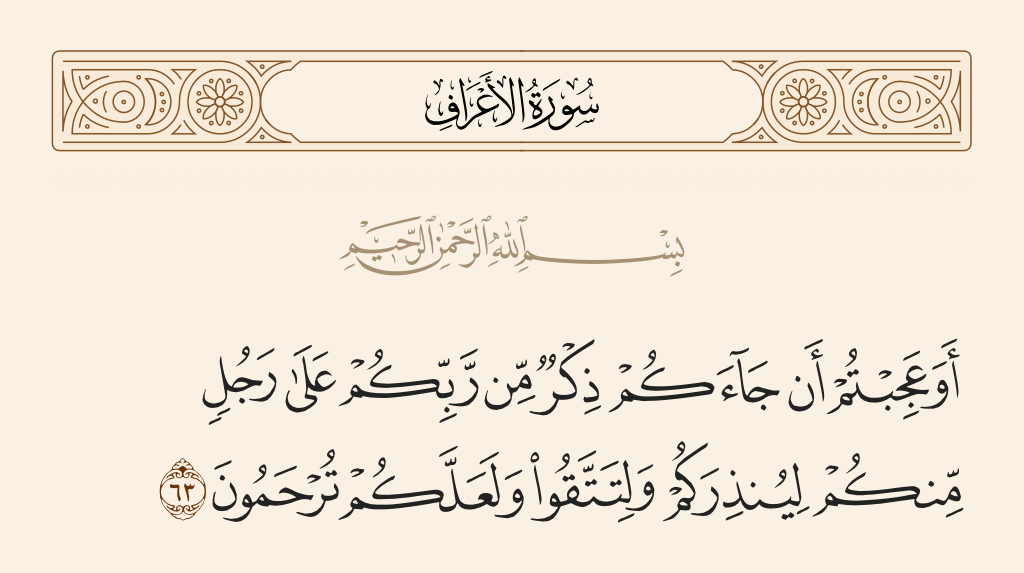 سُورَةُ الأَعْرَافِ
بِسْمِ ٱللَّهِ ٱلرَّحْمَٰنِ ٱلرَّحِيمِ
أَوَعَجِبْتُمْ أَن جَآءَكُمْ ذِكْرٌ مِّن رَّبِّكُمْ عَلَىٰ رَجُلٍ
مِّنكُمْ لِيُنذِرَكُمْ وَلِتَتَّقُوا۟ وَلَعَلَّكُمْ تُرْحَمُونَ ٦٣